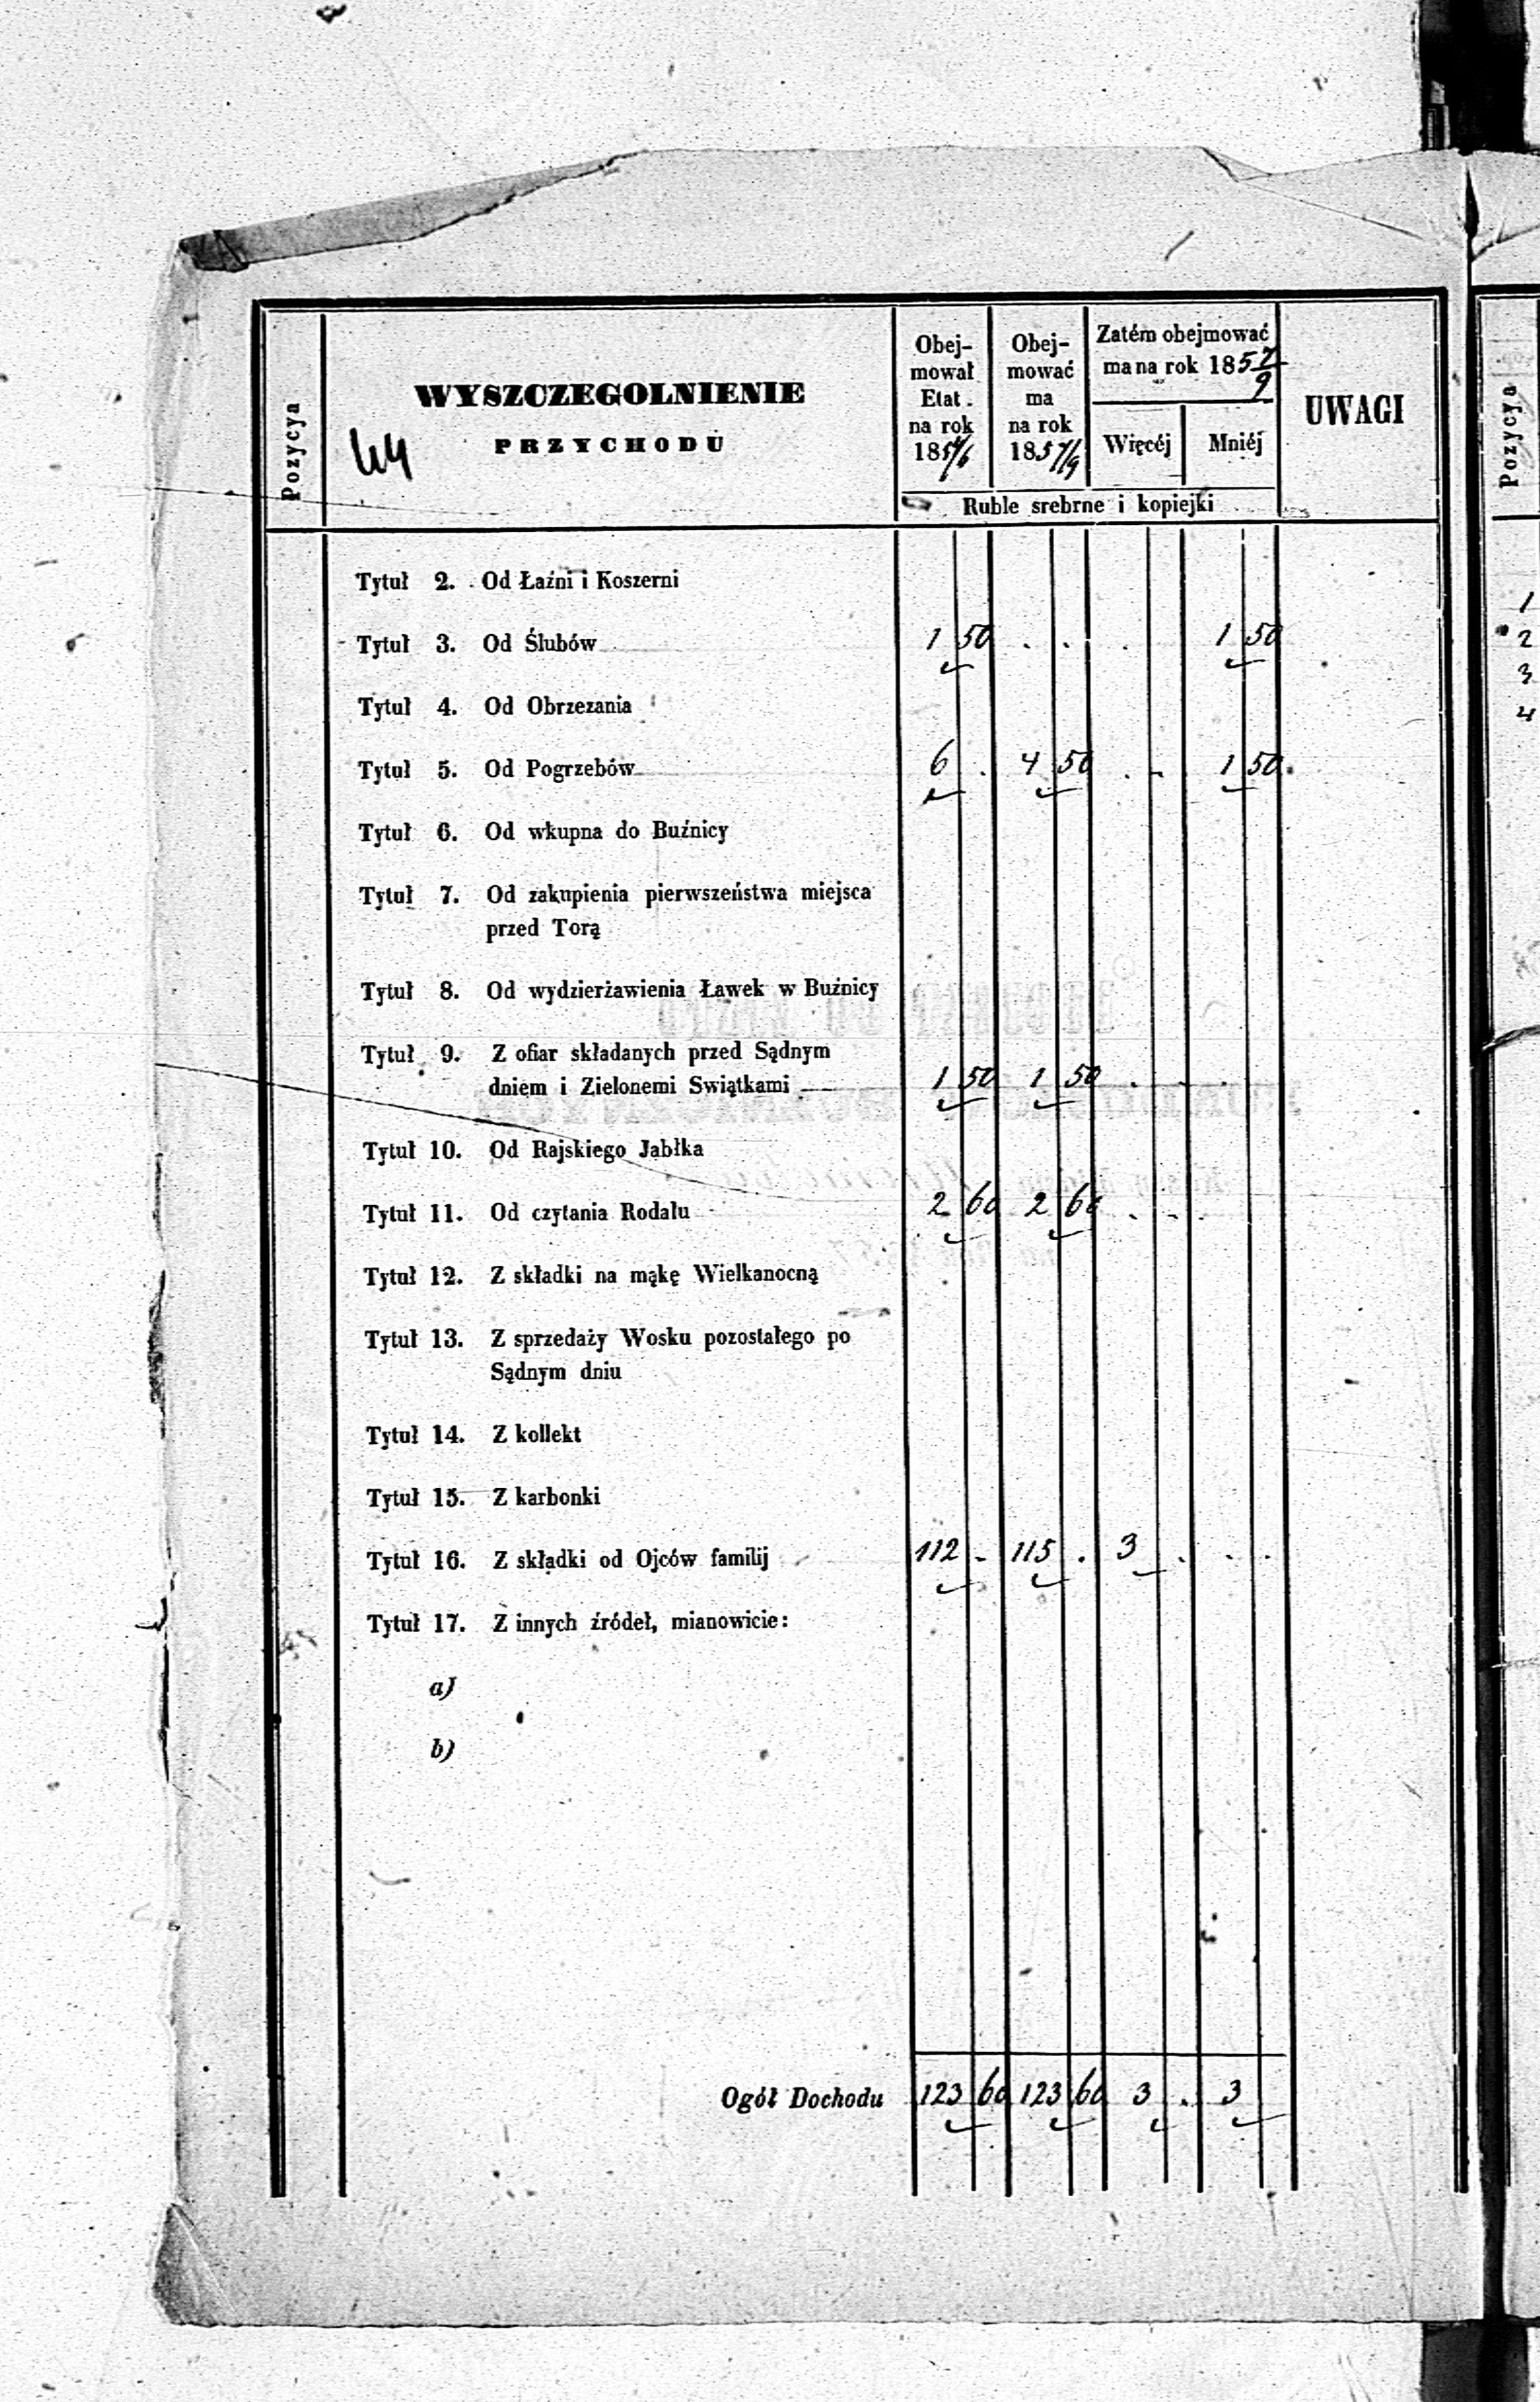 Pozycya
WYSZCZEGOLNIENIE
PRZYCHODU
44
Obej-
mował
Etat
na rok
1854/6
Obej-
mować
ma
na rok
1857/9
Zatém obejmować
ma na rok 1857/9
Więcéj
Mniéj
UWAGI
Ruble srebrne i kopiejki
Tytuł 2. Od Łaźni i Koszerni
Tytuł 3. Od Ślubów 1 50 . . . 1 50
Tytuł 4. Od Obrzezania
Tytuł 5. Od Pogrzebów 6 . 4 50 . - 1 50
Tytuł 6. Od wkupna do Buźnicy
Tytuł 7. Od zakupienia pierwszeństwa miejsca
przed Torą
Tytuł 8. Od wydzierżawienia Ławek w Buźnicy
Tytuł 9. Z ofiar składanych przed Sądnym
dniem i Zielonemi Swiątkami 1 50 1 50 . . .
Tytuł 10. Od Rajskiego Jabłka
Tytuł 11. Od czytania Rodału 2 60 2 60 . . .
Tytuł 12. Z składki na mąkę Wielkanocną
Tytuł 13. Z sprzedaży Wosku pozostałego po
Sądnym dniu
Tytuł 14. Z kollekt
Tytuł 15. Z karbonki
Tytuł 16. Z składki od Ojców familij 112 - 115 . 3 . . .
Tytuł 17. Z innych źródeł, mianowicie:
a)
b)
Ogół Dochodu 123 60 123 60 3 . 3
Pozycya
1
2
3
4